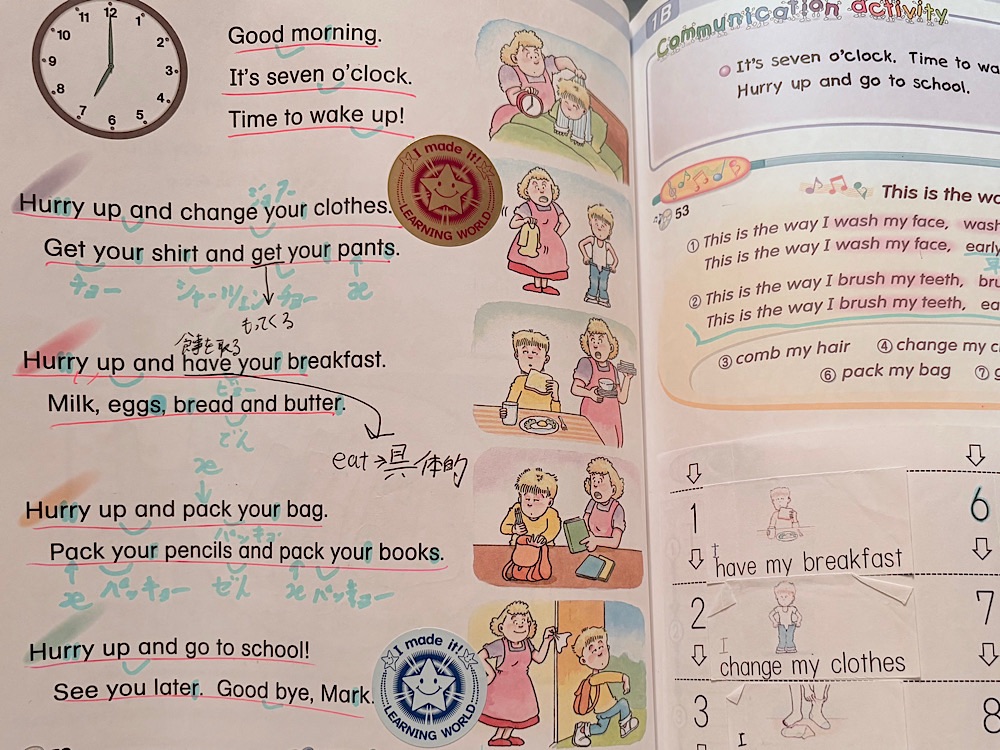 11 12 1
10 2
9 3
8 4
7 6 5
Good morning.
It's seven o'clock.
Time to wake up!
I made it!
LEARNING WORLD
ジョアー
Hurry up and change your clothes.
Get your shirt and get your pants.
チョー シャーツェン チョー æ
もってくる
食事を取る
Hurry up and have your breakfast.
ビョー
Milk, eggs, bread and butter.
でん
eat→具体的
æ
Hurry up and pack your bag.
パッキョー
Pack your pencils and pack your books.
æ パッキョー ぜん æ パッキョー
Hurry up and go to school!
See you later. Good bye, Mark.
I made it!
LEARNING WORLD
1B
Communication activity
It's seven o'clock. Time to wa
Hurry up and go to school.
This is the wa
53
① This is the way I wash my face, wash
This is the way I wash my face, early
② This is the way I brush my teeth, bru
This is the way I brush my teeth, ea
③ comb my hair ④ change my c
⑥ pack my bag ⑦ g
1
I
have my breakfast
6
2
I
change my clothes
7
3
I
8